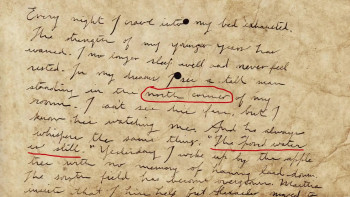 Every night I crawl into my bed exhausted.
The strength of my younger years has
waned. I no longer sleep well and never feel
rested. In my dreams I see a tall man
standing in the north corner of my
room. I can't see his face, but I
know he's watching me. And he always
whispers the same thing. "The pond water
is still." Yesterday I woke up by the apple
tree with no memory of having laid down.
The south field has become overgrown. Martha
insists that I hire help, but